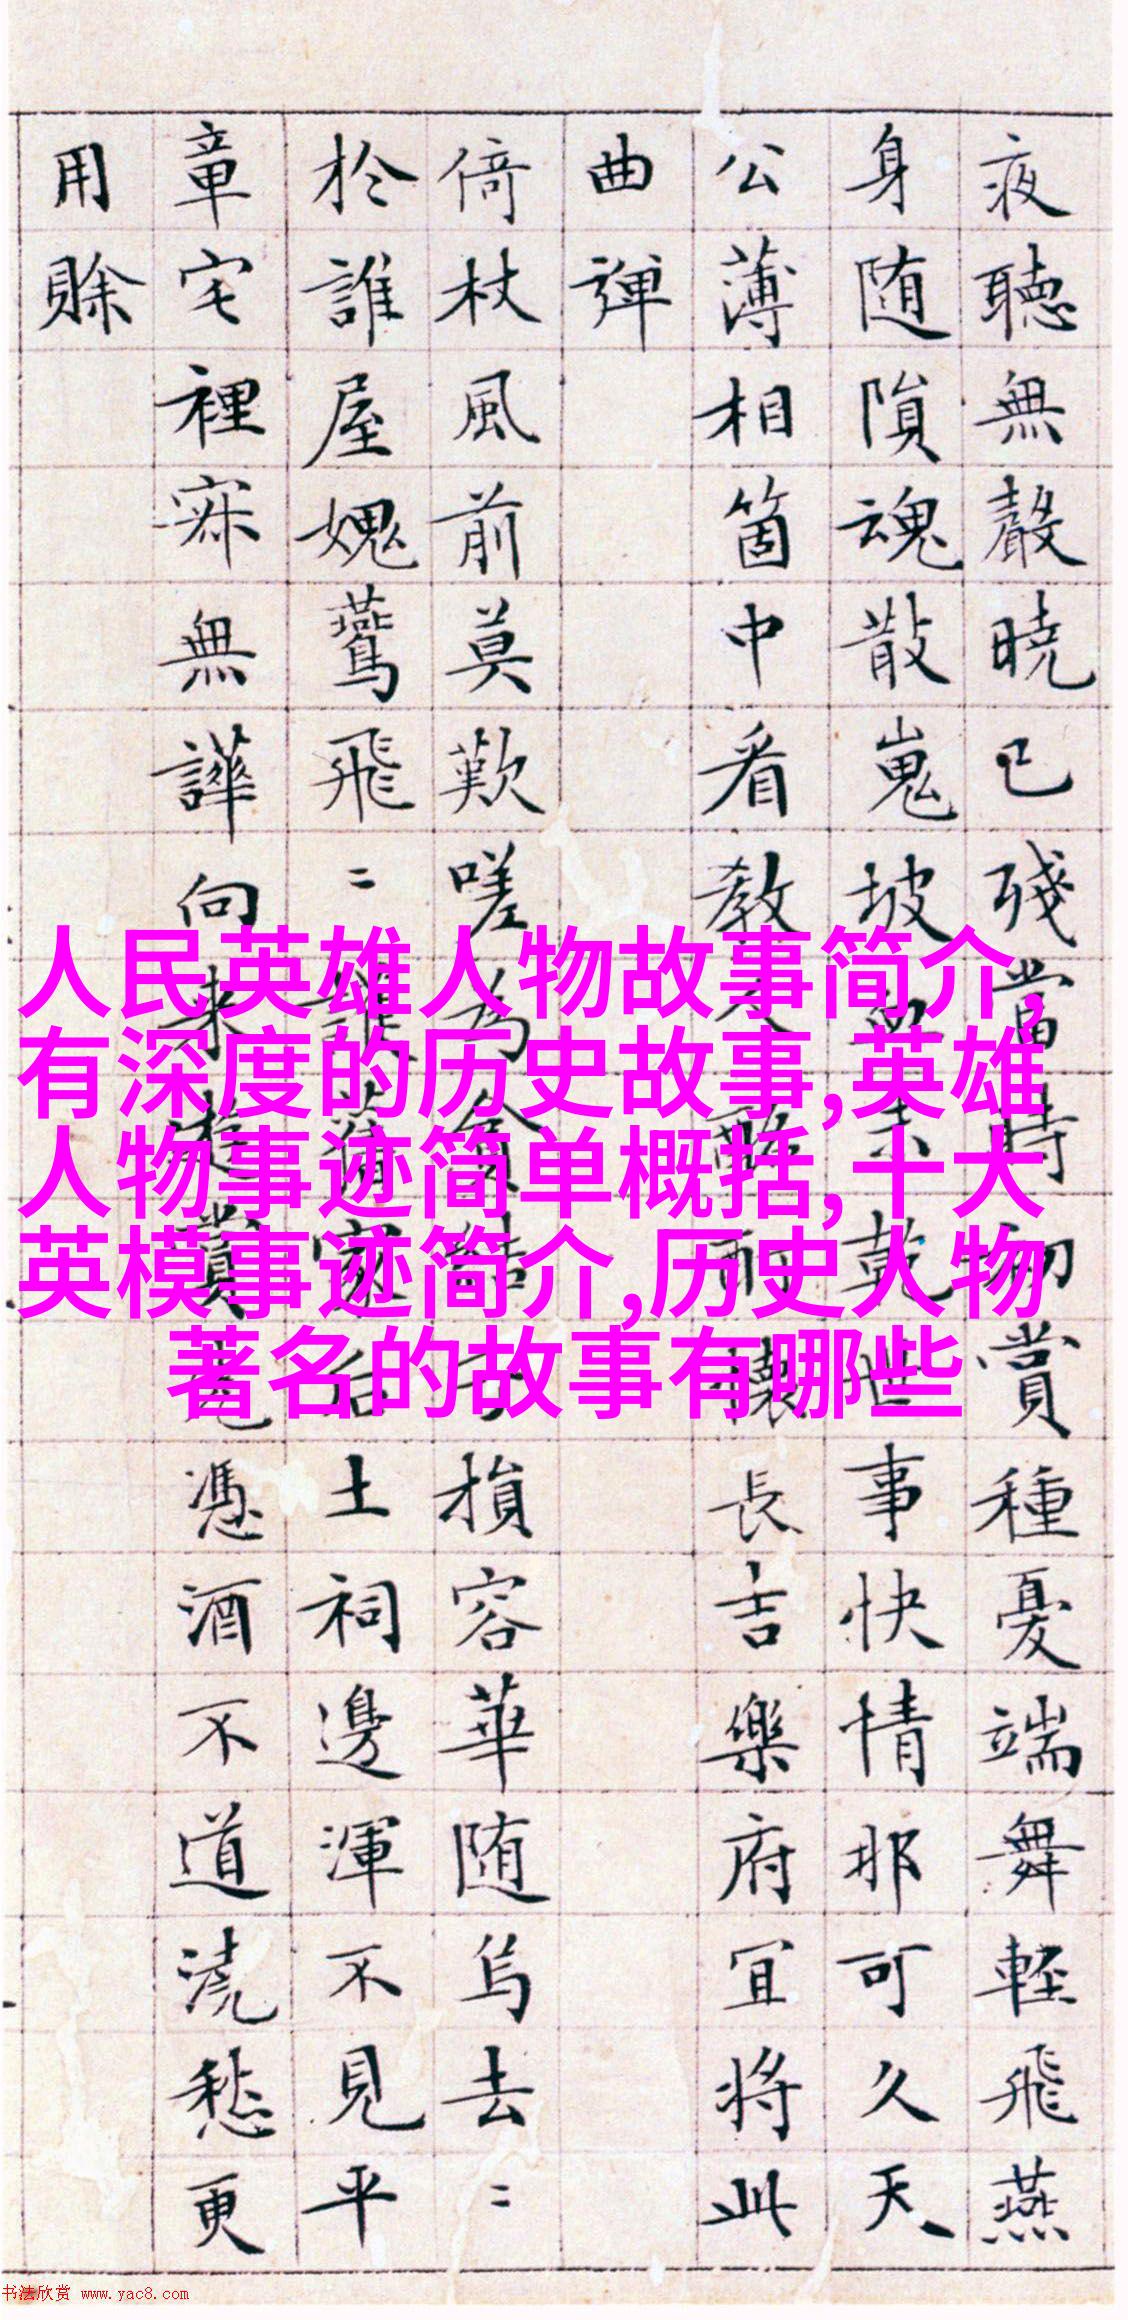 夜聽無聲曉已殘當時勿賞種憂端舞輕飛燕
身随隕魂散嵬坡血未乾世事快情那可久天
公薄相箇中看教人懷長吉樂府冝將此
曲彈
倚杖風前莫歎嗟為貪結子損容華随烏去〻
於誰屋媿鷰飛〻誰落家后土祠邊渾不見平
章宅裡寂無譁向来遊賞尤憑酒不道澆愁更
用賒
人民英雄人物故事简介,
有深度的历史故事,英雄
人物事迹简单概括,十大
英模事迹简介,历史人物
著名的故事有哪些
书法欣赏 www.yac8.com